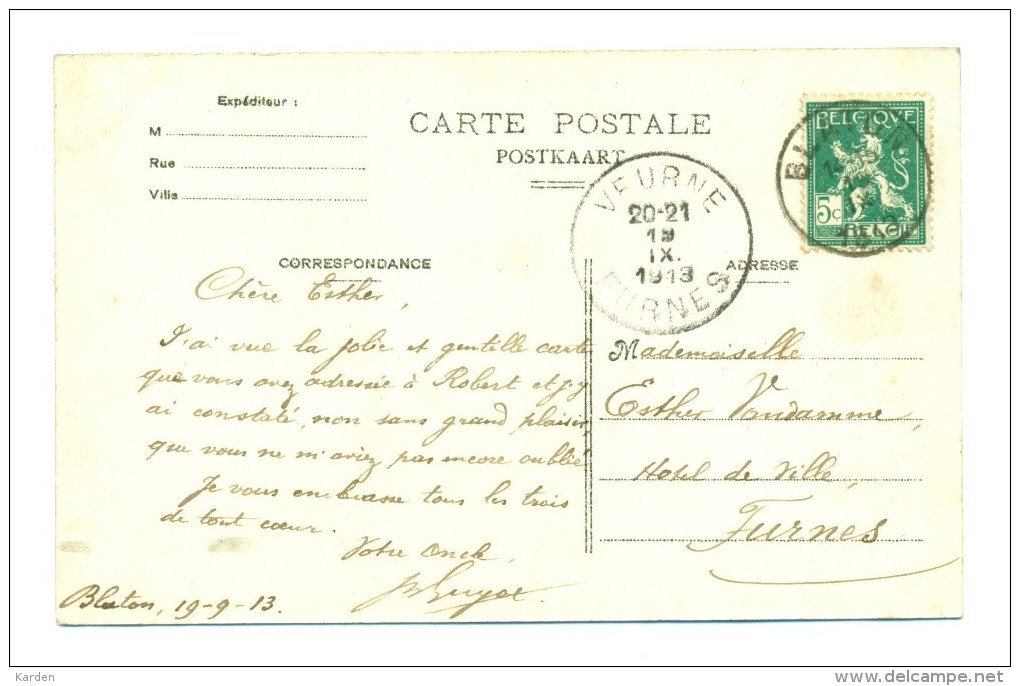 Expéditeur :
M
Rue
Ville
CARTE POSTALE
POSTKAART
BELGIQVE
5c
BELGIË
VEURNE
20-21
19
IX.
1913
FURNES
CORRESPONDANCE
ADRESSE
Chère Esther,
J'ai vue la jolie et gentille carte
que vous avez adressée à Robert et j'y
ai constaté, non sans grand plaisir,
que vous ne m'aviez pas encore oublié
Je vous embrasse tous les trois
de tout cœur.
Votre Oncle,
Blaton, 19-9-13.
Mademoiselle
Esther Vandamme,
Hotel de Ville,
Furnes
Karden
delcampe.net